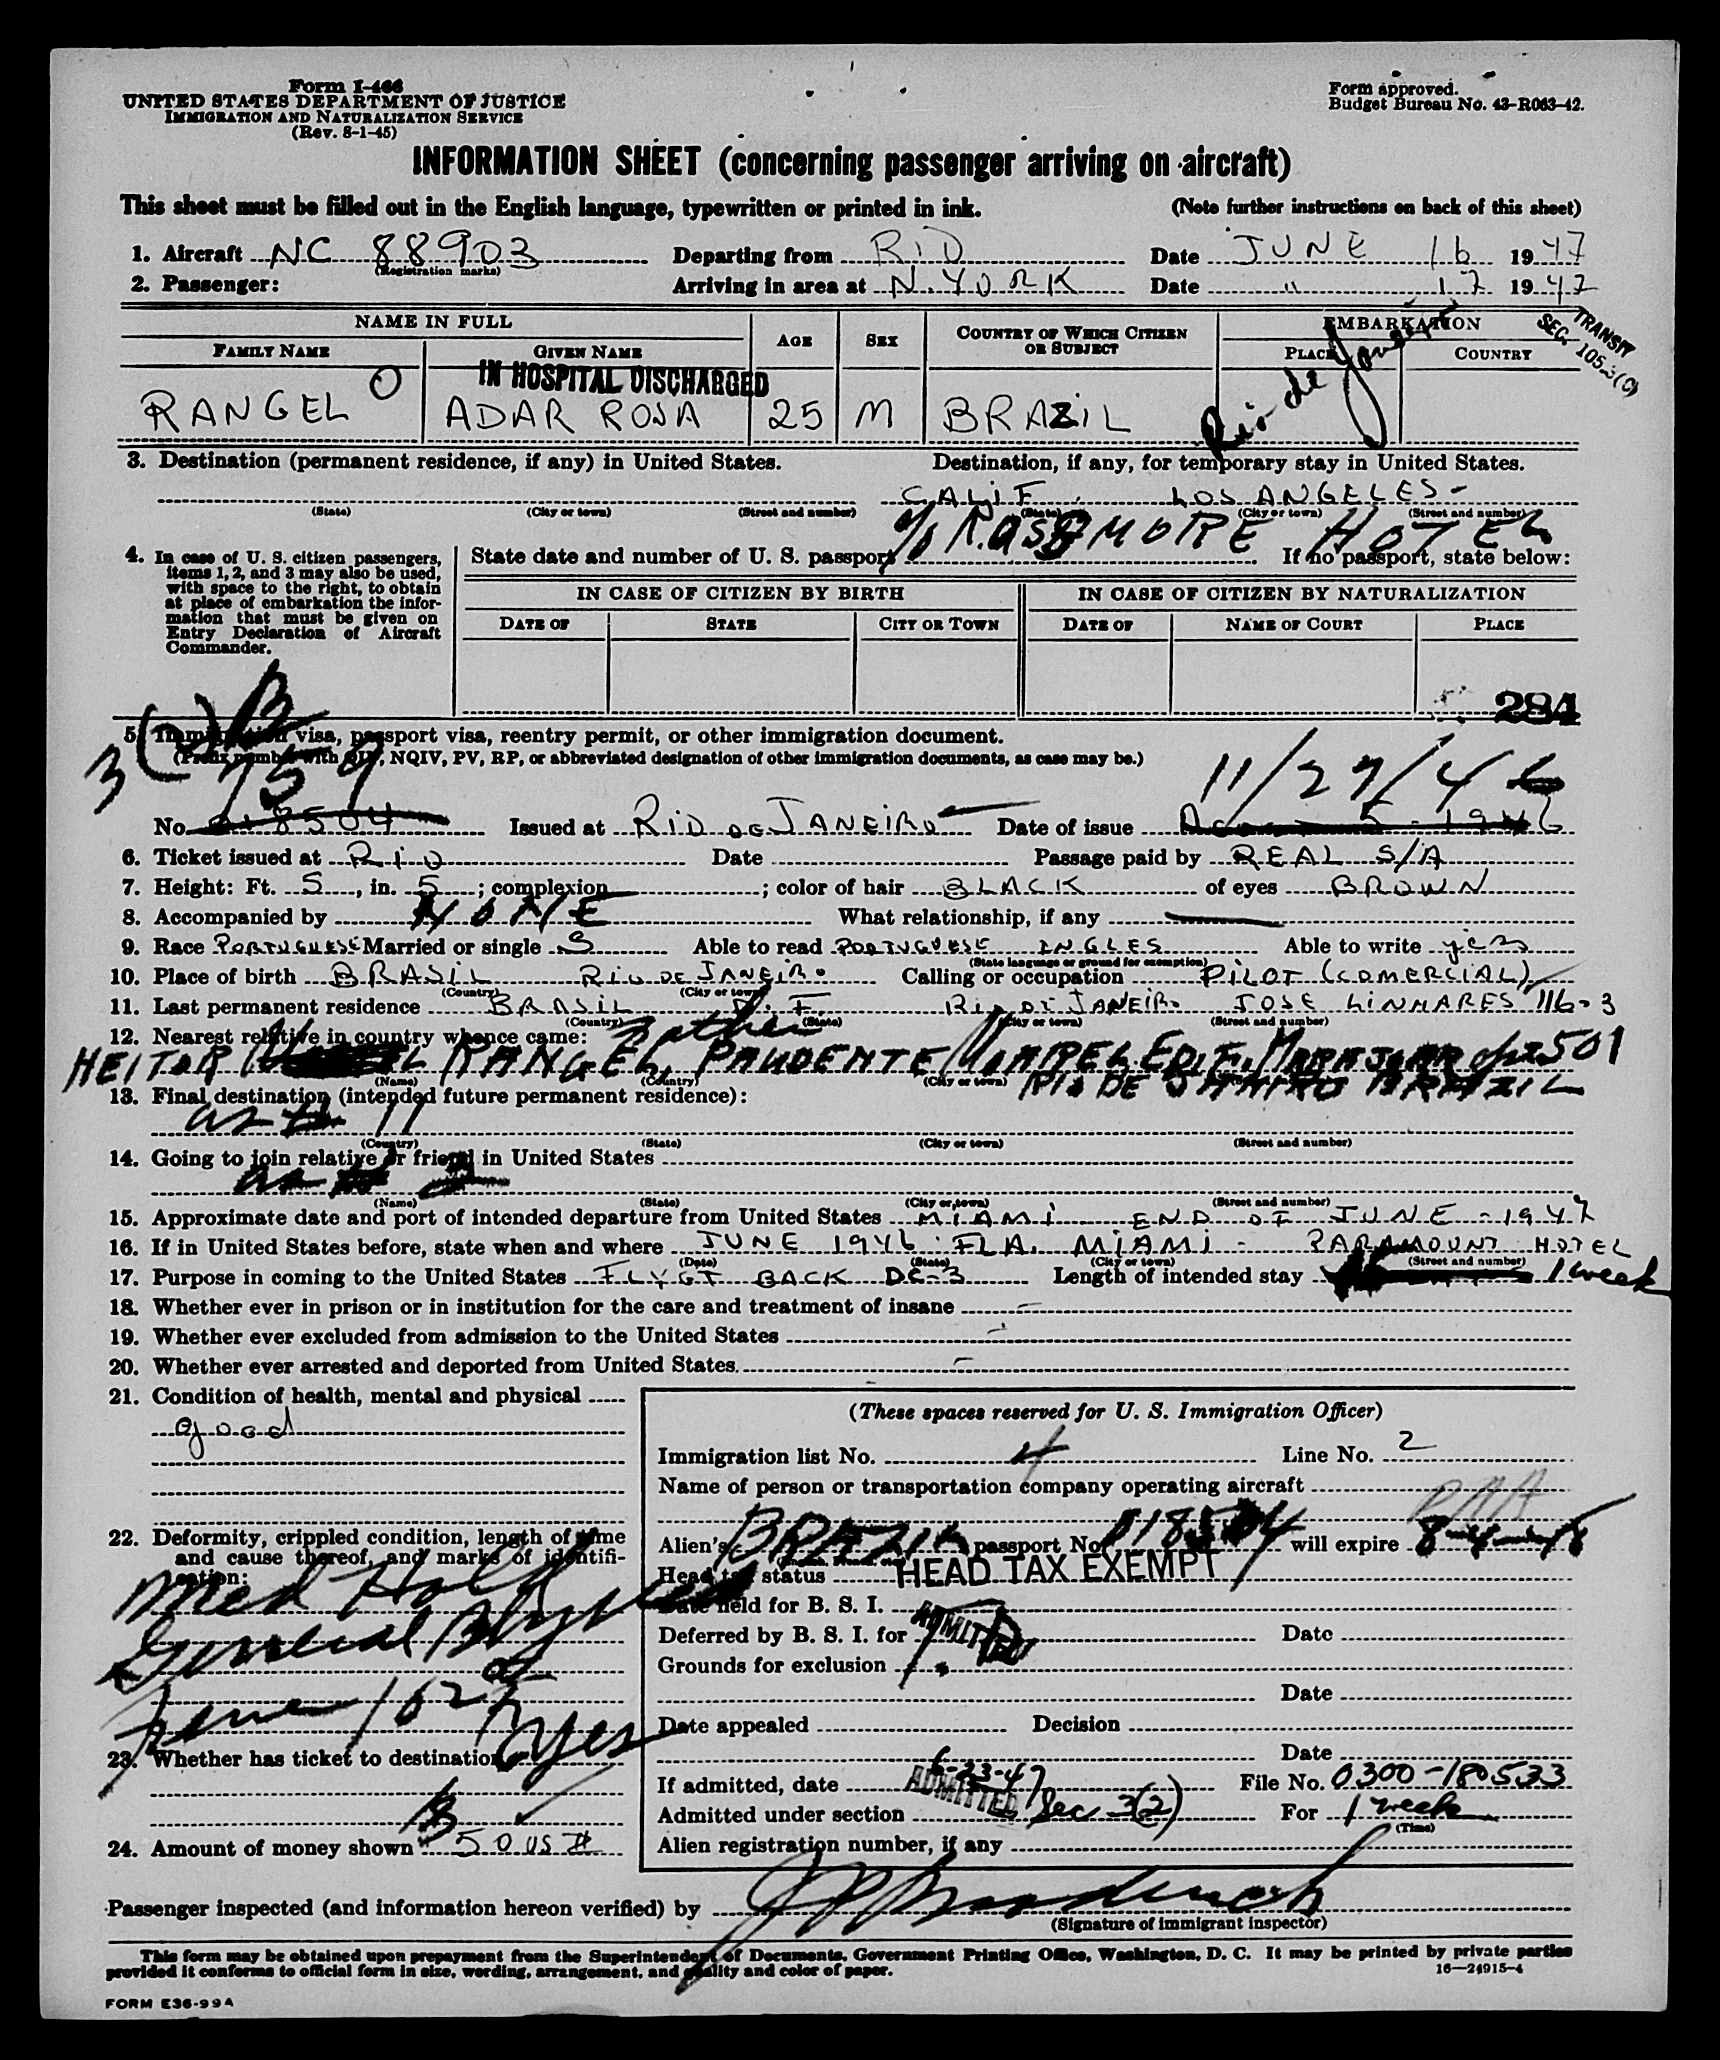 Form I-466
UNITED STATES DEPARTMENT OF JUSTICE
IMMIGRATION AND NATURALIZATION SERVICE
(Rev. 8-1-45)
Form approved.
Budget Bureau No. 43-R063-42.
INFORMATION SHEET (concerning passenger arriving on aircraft)
This sheet must be filled out in the English language, typewritten or printed in ink. (Note further instructions on back of this sheet)
1. Aircraft NC 88903 Departing from RIO Date JUNE 16 1947
(Registration marks)
2. Passenger: Arriving in area at N. YORK Date " 17 1947
NAME IN FULL AGE SEX COUNTRY OF WHICH CITIZEN OR SUBJECT EMBARKATION
FAMILY NAME GIVEN NAME PLACE COUNTRY
TRANSIT
SEC. 105.3(C)
IN HOSPITAL DISCHARGED
RANGEL O ADAR ROSA 25 M BRAZIL Rio de Janeiro
3. Destination (permanent residence, if any) in United States. Destination, if any, for temporary stay in United States.
CALIF. LOS ANGELES -
(State) (City or town) (Street and number) (State) (City or town) (Street and number)
HOTEL
4. In case of U. S. citizen passengers, items 1, 2, and 3 may also be used, with space to the right, to obtain at place of embarkation the information that must be given on Entry Declaration of Aircraft Commander.
State date and number of U. S. passport If no passport, state below:
IN CASE OF CITIZEN BY BIRTH IN CASE OF CITIZEN BY NATURALIZATION
DATE OF STATE CITY OR TOWN DATE OF NAME OF COURT PLACE
284
5. Immigration visa, passport visa, reentry permit, or other immigration document.
(Prefix number with QIV, NQIV, PV, RP, or abbreviated designation of other immigration documents, as case may be.)
3 (2) B
759 11/27/46
No. 018504 Issued at RIO DE JANEIRO Date of issue 5 - 1946
6. Ticket issued at RIO Date Passage paid by REAL S/A
7. Height: Ft. 5, in. 5; complexion ; color of hair BLACK of eyes BROWN
8. Accompanied by NONE What relationship, if any
9. Race PORTUGUESE Married or single S Able to read PORTUGUESE INGLES Able to write yes
(State language or ground for exemption)
10. Place of birth BRASIL RIO DE JANEIRO Calling or occupation PILOT (COMERCIAL)
(Country) (City or town)
11. Last permanent residence BRASIL D. F. RIO DE JANEIRO JOSE LINHARES 116-3
(Country) (State) (City or town) (Street and number)
12. Nearest relative in country whence came: Father
HEITOR RANGEL, PRUDENTE 501
(Name) (Country) (City or town)
RIO DE JANEIRO BRAZIL
13. Final destination (intended future permanent residence):
as # 11
(Country) (State) (City or town) (Street and number)
14. Going to join relative or friend in United States
as # 3
(Name) (State) (City or town) (Street and number)
15. Approximate date and port of intended departure from United States MIAMI END OF JUNE - 1947
16. If in United States before, state when and where JUNE 1946 FLA. MIAMI - PARAMOUNT HOTEL
(Date) (State) (City or town) (Street and number)
17. Purpose in coming to the United States FLYGT BACK DC-3 Length of intended stay 1 week
18. Whether ever in prison or in institution for the care and treatment of insane -
19. Whether ever excluded from admission to the United States -
20. Whether ever arrested and deported from United States. -
21. Condition of health, mental and physical
good
22. Deformity, crippled condition, length of time and cause thereof, and marks of identification:
Med Hold
General
23. Whether has ticket to destination yes
24. Amount of money shown 50 US $
(These spaces reserved for U. S. Immigration Officer)
Immigration list No. 4 Line No. 2
Name of person or transportation company operating aircraft PAA
Alien's BRAZIL passport No. 018504 will expire 8-4-48
Head tax status HEAD TAX EXEMPT
Date held for B. S. I.
Deferred by B. S. I. for ADMITTED Date
Grounds for exclusion
Date
Date appealed Decision
Date
If admitted, date 6-23-47 File No. 0300-180533
ADMITTED
Admitted under section Sec 3(2) For 1 week
(Time)
Alien registration number, if any
Passenger inspected (and information hereon verified) by
(Signature of immigrant inspector)
This form may be obtained upon prepayment from the Superintendent of Documents, Government Printing Office, Washington, D. C. It may be printed by private parties
provided it conforms to official form in size, wording, arrangement, and quality and color of paper.
16—24915-4
FORM E36-99A